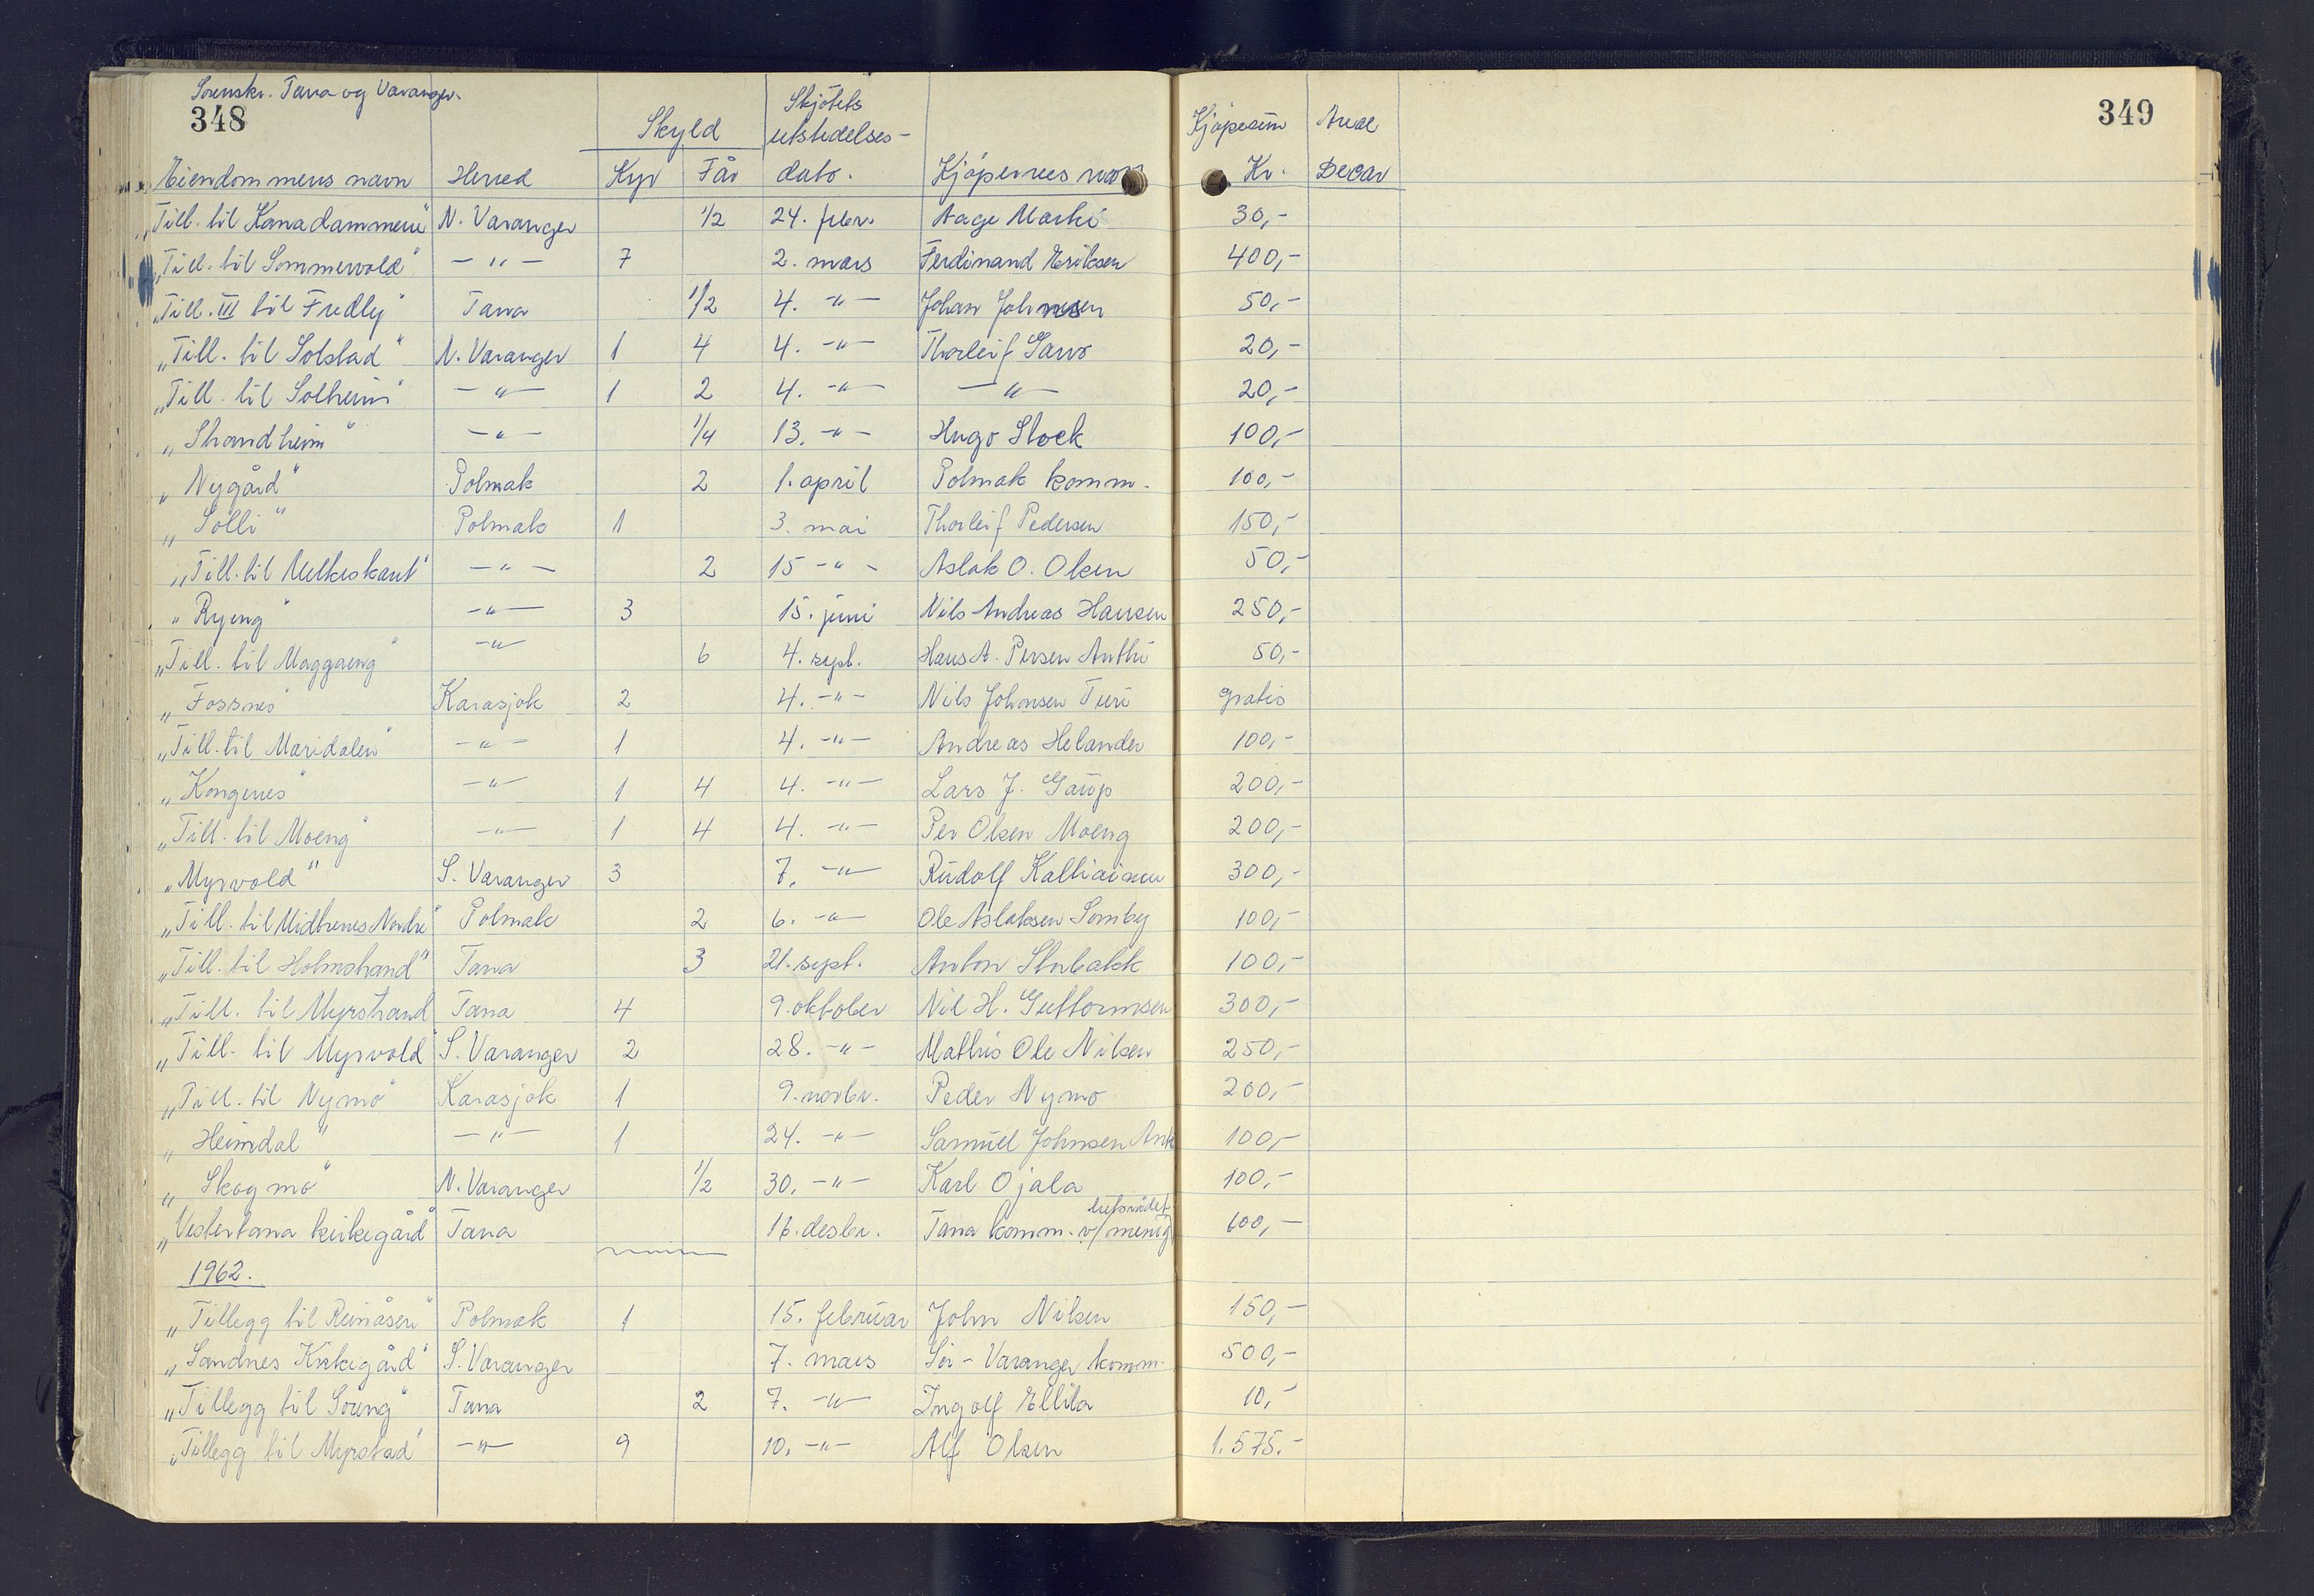 Sorenskr. Tana og Varanger.
348
349
Skyld
Skjötets utstedelses-
Kjöpesum
Areal
Eiendommens navn Herred Kyr Får dato. Kjöperens navn Kr. Decar
„Till. til Kanadammene" N. Varanger 1/2 24. febr. Aage Marki 30,-
„Till. til Sommervold" -"- 7 2. mars Ferdinand Eriksen 400,-
„Till. III til Fredly" Tana 1/2 4. -"- Johan Johnsen 50,-
„Till. til Solstad" N. Varanger 1 4 4. -"- Thorleif Savo 20,-
„Till. til Solheim" -"- 1 2 4. -"- -"- 20,-
„Strandheim" -"- 1/4 13. -"- Hugo Stock 100,-
„Nygård" Polmak 2 1. april Polmak komm. 100,-
„Solli" Polmak 1 3. mai Thorleif Pedersen 150,-
„Till. til Melkeskaret" -"- 2 15 -"- Aslak O. Olsen 50,-
„Ryeng" -"- 3 15. juni Nils Andreas Hansen 250,-
„Till. til Maggaeng" -"- 6 4. sept. Hans A. Persen Anthi 50,-
„Fossnes" Karasjok 2 4. -"- Nils Johnsen Turi gratis
„Till. til Maridalen" -"- 1 4. -"- Andreas Helander 100,-
„Kongenes" -"- 1 4 4. -"- Lars J. Gaup 200,-
„Till. til Moeng" -"- 1 4 4. -"- Per Olsen Moeng 200,-
„Myrvold" S. Varanger 3 7. -"- Rudolf Kalliainen 300,-
„Till. til Midtrenes Nordre" Polmak 2 6. -"- Ole Aslaksen Somby 100,-
„Till. til Holmstrand" Tana 3 21. sept. Anton Storbakk 100,-
„Till. til Myrstrand Tana 4 9. oktober Nil H. Guttormsen 300,-
„Till. til Myrvold" S. Varanger 2 28. -"- Mathis Ole Nilsen 250,-
„Till. til Nymo" Karasjok 1 9. novbr. Peder Nymo 200,-
„Heimdal" -"- 1 24. -"- Samuel Johnsen Anti 100,-
„Skogmo" N. Varanger 1/2 30. -"- Karl Ojala 100,-
„Vestertana kirkegård" Tana 16. desbr. Tana komm. v/menighetsrådet 100,-
1962.
„Tillegg til Reinåsen" Polmak 1 15. februar John Nilsen 150,-
„Sandnes Kirkegård" S. Varanger 7. mars Sör-Varanger komm. 500,-
„Tillegg til Soleng" Tana 2 7. -"- Ingolf Ellila 10,-
„Tillegg til Myrstad" -"- 9 10. -"- Alf Olsen 1.575.-